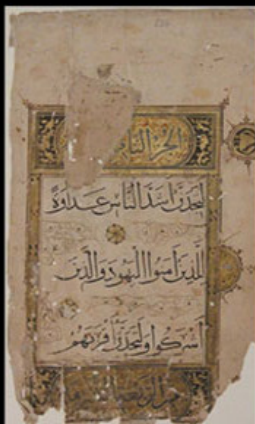 الجزء السابع
لتجدن اشد الناس عداوة
للذين امنوا اليهود والذين
اشركوا ولتجدن اقربهم